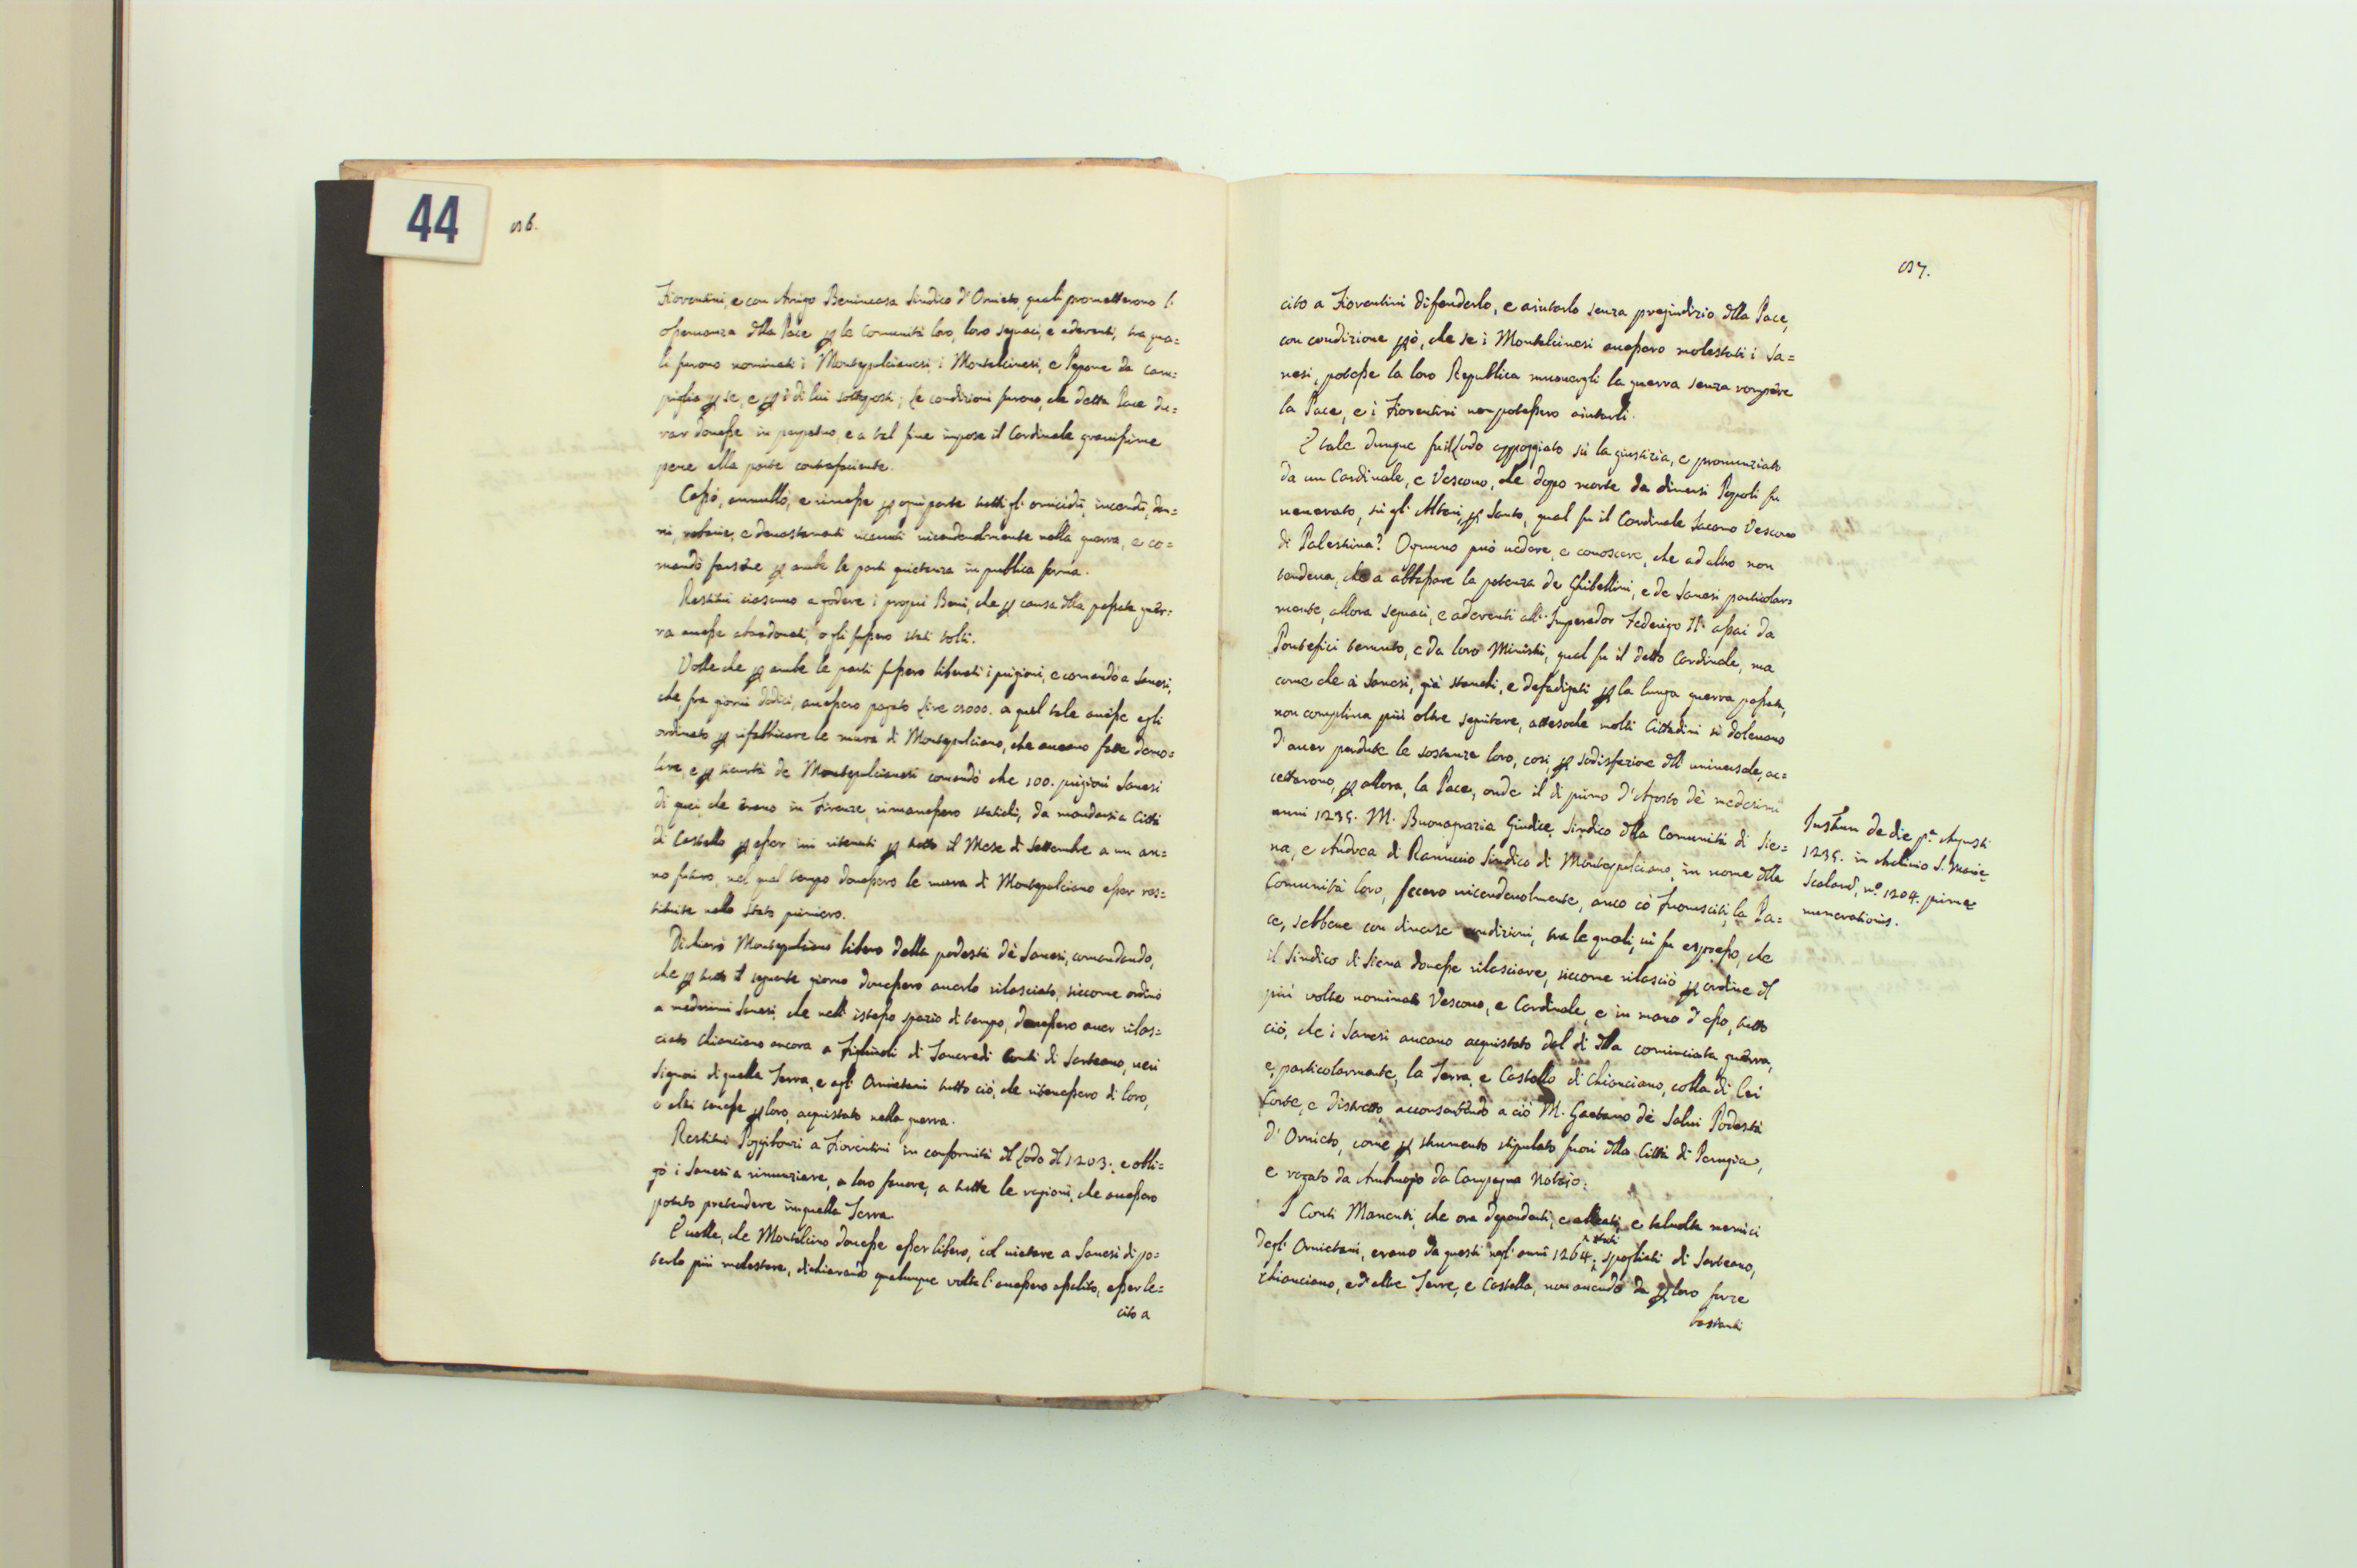 44
86.
Fiorentini, e con Arrigo Benincasa Sindico d'Orvieto, quali promettevono l'
osservanza della Pace per le Comunità loro, loro seguaci, e aderenti, tra qua=
li furono nominati i Montepulcianesi, i Montalcinesi, e Pepone da Cam=
piglia per se, e per i di lui sottoposti; Le condizioni furono, che detta Pace du=
rar dovesse in perpetuo, e a tal fine impose il Cardinale gravissime
pene alla parte contrafaciente.
Cassò, annullò, e rimesse per ogni parte tutti gl'omicidii, incendii, dan=
ni, ruberie, e devastamenti ricevuti vicendevolmente nella guerra, e co=
mandò farsene per ambe le parti quietanza in publica forma.
Restituì ciascuno a godere i propri Beni, che per causa della passata guer=
ra avesse abandonati, o gli fussero stati tolti.
Volle che per ambe le parti fussero liberati i prigioni, e comandò a Sanesi,
che fra giorni dodici, avessero pagato Lire 8000. a quel tale avesse egli
ordinato per rifabbricare le mura di Montepulciano, che avevano fatte demo=
lire, e per sicurtà de Montepulcianesi comandò che 100. prigioni Sanesi
di quei che erano in Firenze, rimanessero statichi, da mandarsi a Città
di Castello per esser ivi ritenuti per tutto il Mese di Settembre a un an=
no futuro, nel qual tempo dovessero le mura di Montepulciano esser res=
tituite nello stato primiero.
Dichiarò Montepulciano libero della podestà de Sanesi, comandando,
che per tutto il seguente giorno dovessero averlo rilasciato, siccome ordinò
a medesimi Sanesi, che nell'istesso spazio di tempo, dovessero aver rilas=
ciato Chianciano ancora a Figliuoli di Tancredi Conti di Sarteano, veri
Signori di quella Terra, e agl'Orvietani tutto ciò, che ritenessero di loro,
o altri tenesse per loro, acquistato nella guerra.
Restituì Poggibonzi a Fiorentini in conformità del Lodo del 1203., e obbli=
gò i Sanesi a rinunziare, a loro favore, a tutte le ragioni, che avessero
potuto pretendere in quella Terra.
E volle, che Montalcino dovesse esser libero, col vietare a Sanesi di po=
terlo più molestare, dichiarando qualunque volta l'avessero assalito, esser le=
cito a
87.
cito a Fiorentini difenderlo, e aiutarlo senza pregiudizio della Pace,
con condizione però, che se i Montalcinesi avessero molestati i Sa=
nesi, potesse la loro Republica muovergli la guerra senza rompere
la Pace, e i Fiorentini non potessero aiutarli.
E tale dunque fu il Lodo appoggiato sù la giustizia, e pronunziato
da un Cardinale, e Vescovo, che dopo morte da diversi Popoli fu
venerato, sù gl'Altari, per Santo, qual fu il Cardinale Jacomo Vescovo
di Palestina? Ognuno può vedere, e conoscere, che ad altro non
tendeva, che a abbassare la potenza de Ghibellini, e de Sanesi particolar=
mente, allora seguaci, e aderenti all'Imperador Federigo II. assai da
Pontefici temuto, e da loro Ministri, qual fu il detto Cardinale, ma
come che ai Sanesi, già stanchi, e defadigati per la lunga guerra passata,
non compliva più oltre seguitare, attesoche molti Cittadini si dolevano
d'aver perdute le sostanze loro, così, per sodisfazione dell'universale, ac=
cettarono, per allora, la Pace, onde il dì primo d'Agosto dè medesimi
anni 1235. M. Buonagrazia Giudice, Sindico della Comunità di Sie=
na, e Andrea di Ranuccio Sindico di Montepulciano, in nome delle
Comunità loro, fecero vicendevolmente, anco cò Fuorusciti, la Pa=
ce, sebbene con diverse condizioni, tra le quali, vi fu espresso, che
il Sindico di Siena dovesse rilasciare, siccome rilasciò per ordine del
più volte nominato Vescovo, e Cardinale, e in mano d'esso, tutto
ciò, che i Sanesi avevano acquistato dal dì della cominciata guerra,
e, particolarmente, la Terra, e Castello di Chianciano, colla di lei
Corte, e distretto, acconsentendo a ciò M. Gaetano dè Salvi Podestà
d'Orvieto, come per strumento stipulato fuori della Città di Perugia,
e rogato da Ambrogio da Campagna Notaio.
I Conti Manenti, che ora dependenti, e alleati, e talvolta nemici
degl'Orvietani, erano da questi negl'anni 1264. stati spogliati di Sarteano,
Chianciano, e d'altre Terre, e Castella, non avendo da per loro forze
bastanti
Instrum de die p.ª Augusti
1235. in Archivio S. Mariæ
Scalarum, n.º 1204. primæ
numerationis.